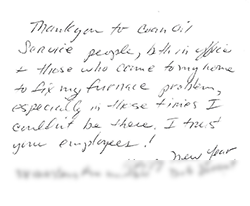 Thank you to Cown Oil
Service people, both in office
+ those who come to my home
to fix my furnace problem,
especially in these times I
couldn't be there. I trust
your employees!
new year